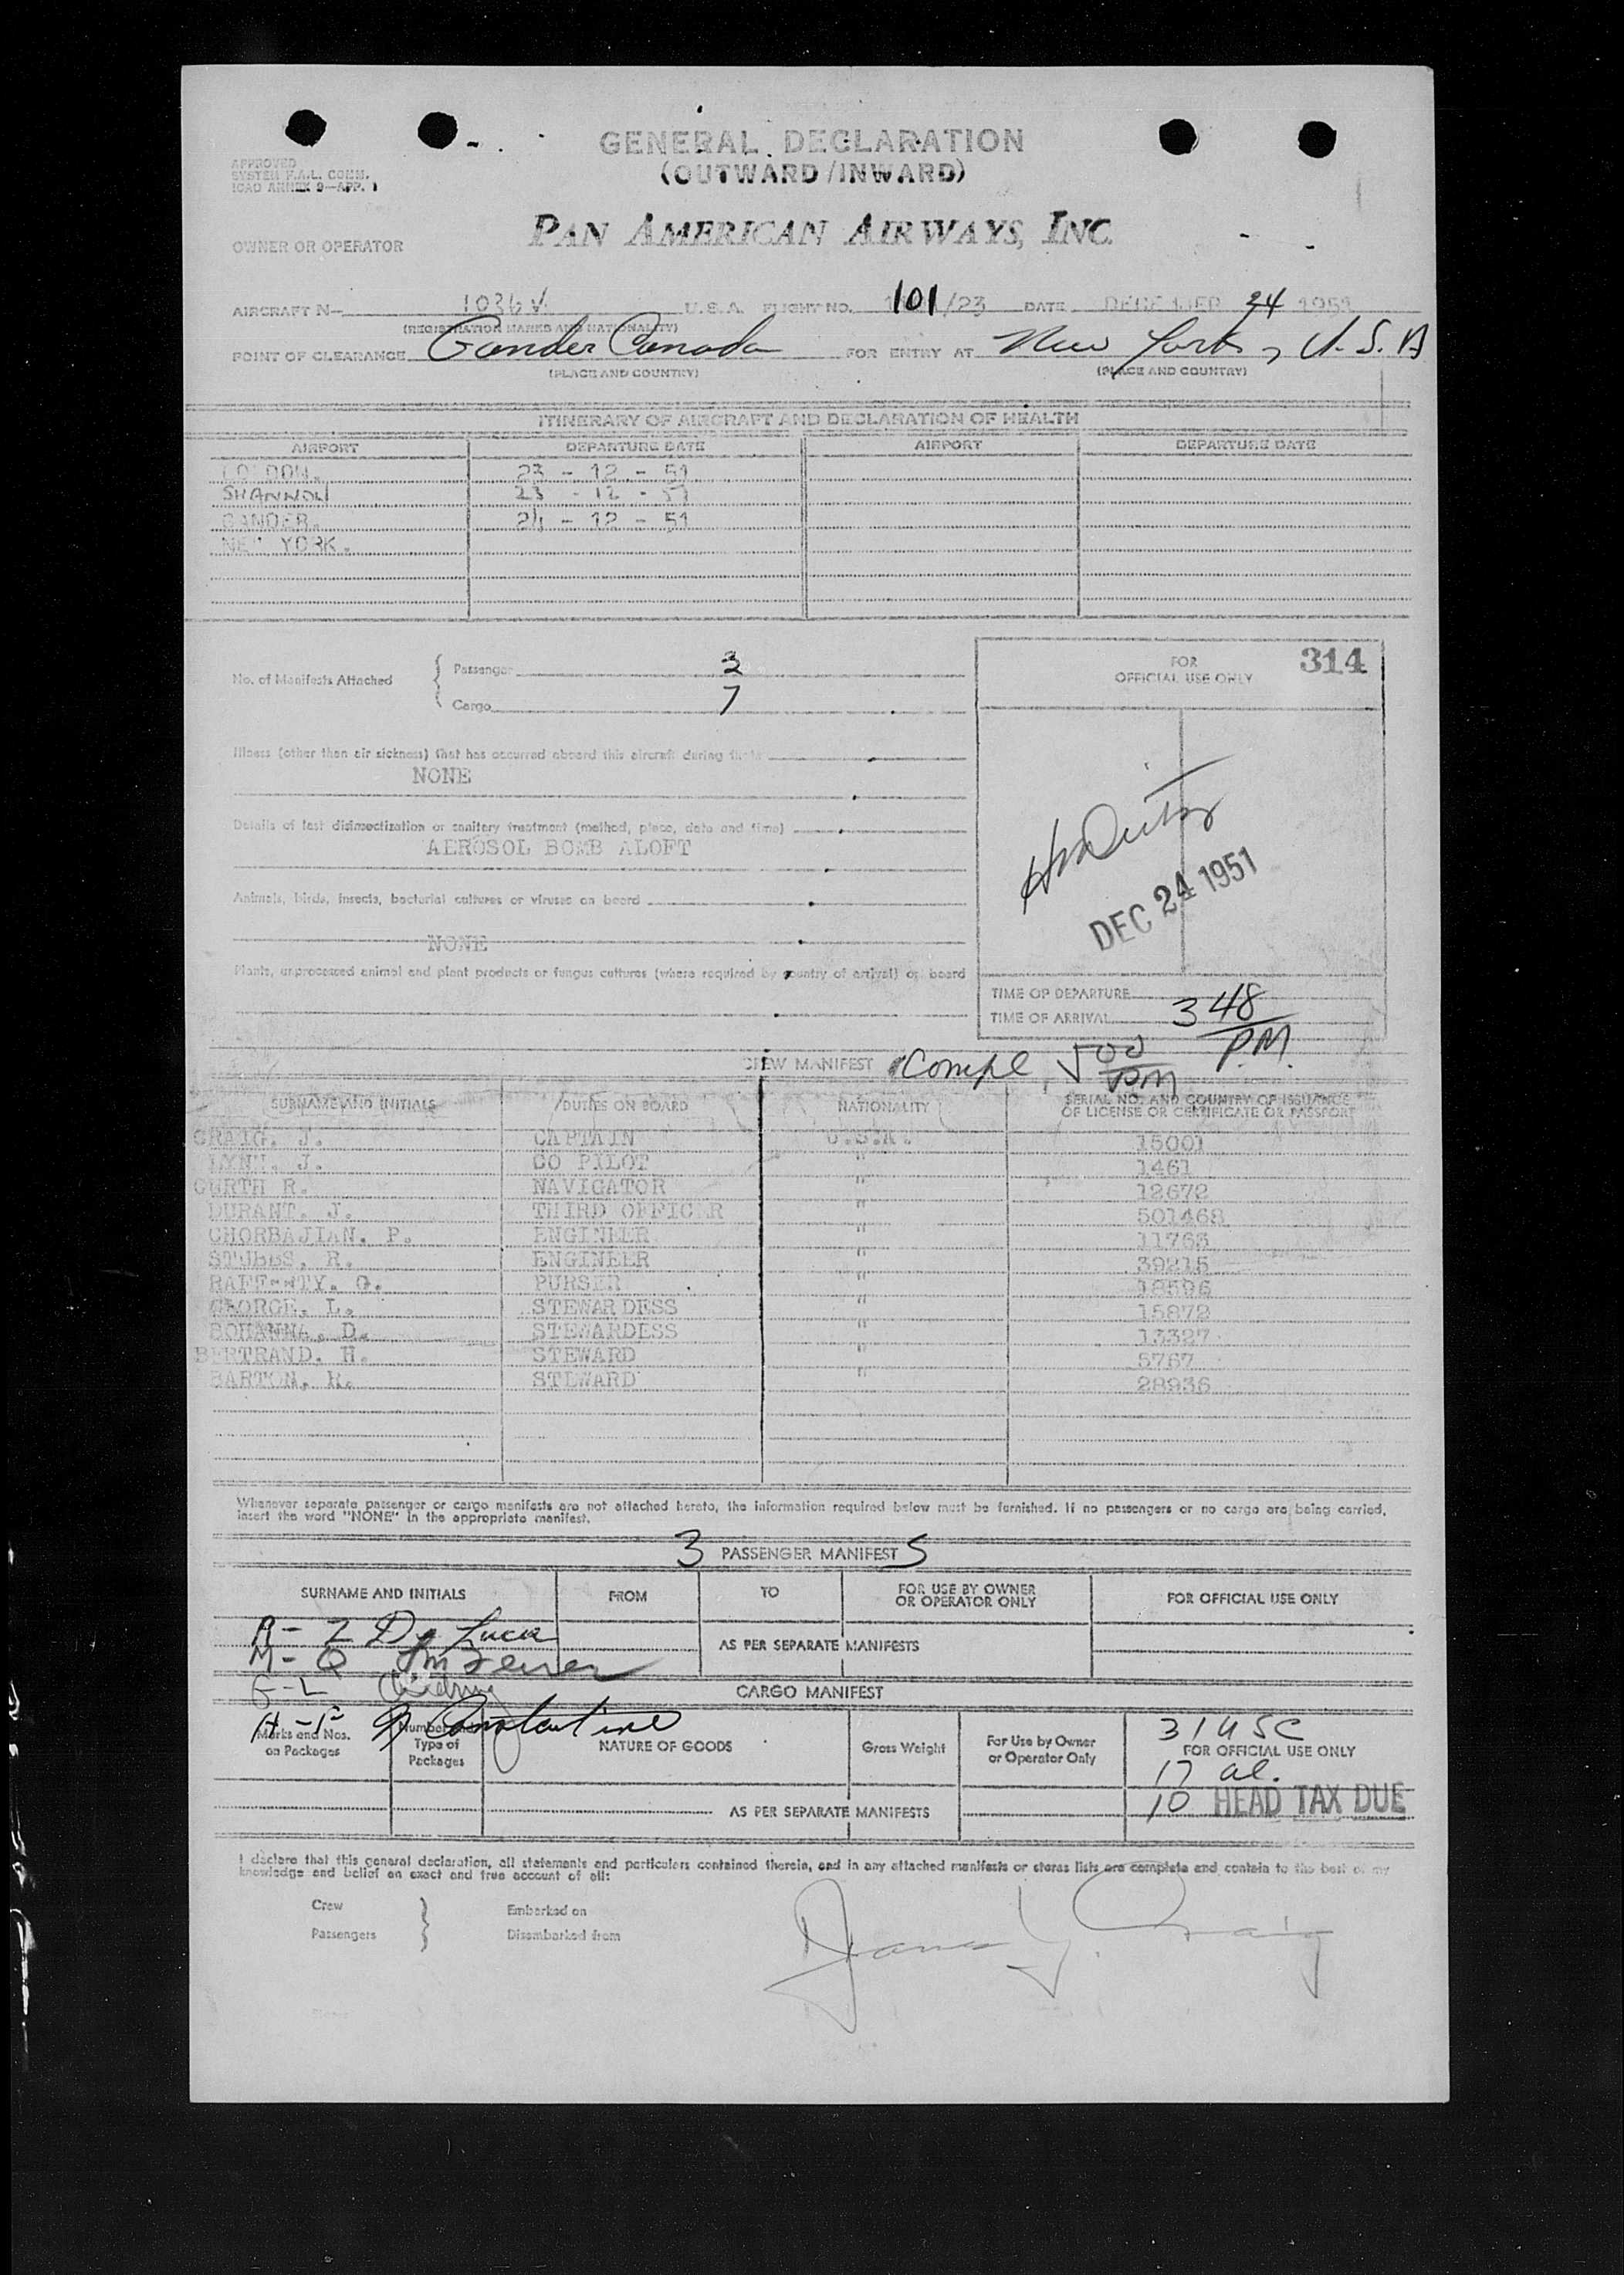 GENERAL DECLARATION
(OUTWARD/INWARD)
APPROVED
SYSTEM F.A.L. COMM.
ICAO ANNEX 9—APP. 1
PAN AMERICAN AIRWAYS, INC.
OWNER OR OPERATOR
AIRCRAFT N— 1036V U.S.A. FLIGHT NO. 101/23 DATE DECEMBER 24 1951
(REGISTRATION MARKS AND NATIONALITY)
POINT OF CLEARANCE Gander Canada FOR ENTRY AT New York, U.S.A
(PLACE AND COUNTRY) (PLACE AND COUNTRY)
ITINERARY OF AIRCRAFT AND DECLARATION OF HEALTH
AIRPORT DEPARTURE DATE AIRPORT DEPARTURE DATE
LONDON. 23 - 12 - 51
SHANNON 23 - 12 - 51
GANDER. 24 - 12 - 51
NEW YORK.
No. of Manifests Attached { Passenger 3
Cargo 7
FOR OFFICIAL USE ONLY 314
Illness (other than air sickness) that has occurred aboard this aircraft during
NONE
Details of last disinsectization or sanitary treatment (method, place, date and time)
AEROSOL BOMB ALOFT
Animals, birds, insects, bacterial cultures or viruses on board
NONE
Plants, unprocessed animal and plant products or fungus cultures (where required by country of arrival) on board
DEC 24 1951
TIME OF DEPARTURE
TIME OF ARRIVAL 3 48 P.M.
CREW MANIFEST Compl. 5 00 PM
SURNAME AND INITIALS DUTIES ON BOARD NATIONALITY SERIAL NO. AND COUNTRY OF ISSUANCE
OF LICENSE OR CERTIFICATE OR PASSPORT
CRAIG. J. CAPTAIN U.S.A. 15001
LYNN. J. CO PILOT " 1461
GURTH R. NAVIGATOR " 12672
DURANT. J. THIRD OFFICER " 501468
CHORBAJIAN. P. ENGINEER " 11763
STUBBS, R. ENGINEER " 39215
RAFFERTY. G. PURSER " 18596
GEORGE. L. STEWARDESS " 15872
BOHANNA. D. STEWARDESS " 13327
BERTRAND. H. STEWARD " 5767
BARTON. R. STEWARD " 28936
Whenever separate passenger or cargo manifests are not attached hereto, the information required below must be furnished. If no passengers or no cargo are being carried,
insert the word "NONE" in the appropriate manifest.
3 PASSENGER MANIFEST S
SURNAME AND INITIALS FROM TO FOR USE BY OWNER
OR OPERATOR ONLY FOR OFFICIAL USE ONLY
AS PER SEPARATE MANIFESTS
M - Q
CARGO MANIFEST
Constantine
Marks and Nos.
on Packages Number and
Type of
Packages NATURE OF GOODS Gross Weight For Use by Owner
or Operator Only FOR OFFICIAL USE ONLY
31 USC
17 al.
AS PER SEPARATE MANIFESTS 10 HEAD TAX DUE
I declare that this general declaration, all statements and particulars contained therein, and in any attached manifests or stores lists are complete and contain to the best of my
knowledge and belief an exact and true account of all:
Crew } Embarked on
Passengers } Disembarked from
James J. Craig